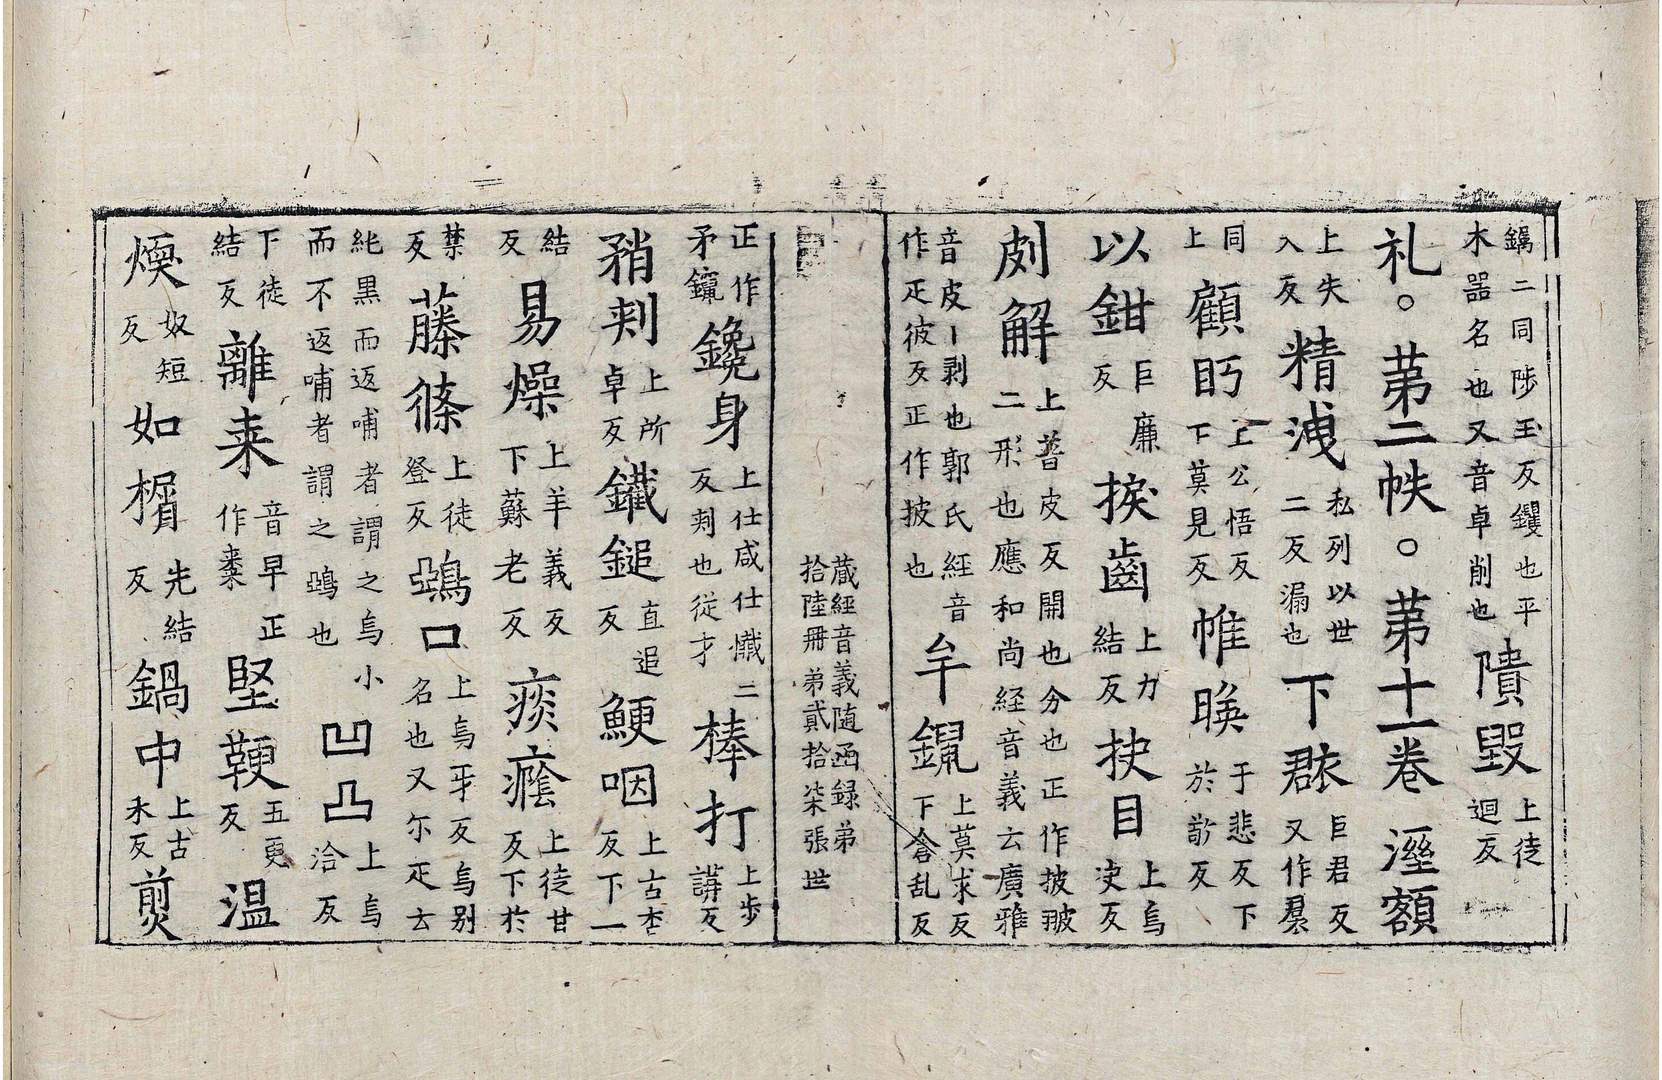 鐋二同陟玉反钁也平木噐名也又音卓削也隤毀上徒迴反
礼。苐二帙。苐十一卷 溼額
上失入反精洩私列以世二反漏也下群巨君反又作羣
同上顧眄上公悟反下莫見反帷㬇于悲反下於敬反
以鉗巨廉反捩齒上力結反抉目上烏决反
㓟解上普皮反開也分也正作披翍二形也應和尚経音義云廣雅
音皮丨剥也郭氏経音作疋彼反正作披也牟鑹上莫求反下倉乱反
蔵經音義随函録弟拾陸冊弟貳拾柒張 世
正作矛鑹鑱身上仕咸仕懺二反刾也従才棒打上步講反
矟刾上所卓反鐵鎚直追反鯁咽上古杏反下一
結反易燥上羊義反下蘇老反痰癊上徒甘反下於
禁反藤條上徒登反鵶口上烏牙反烏别名也又尓疋云
純黒而返哺者謂之烏小而不返哺者謂之鵶也凹凸上烏洽反
下徒結反離来音早正作棗堅鞕五更反 温
煗奴短反如楈先結反鍋中上古禾反煎